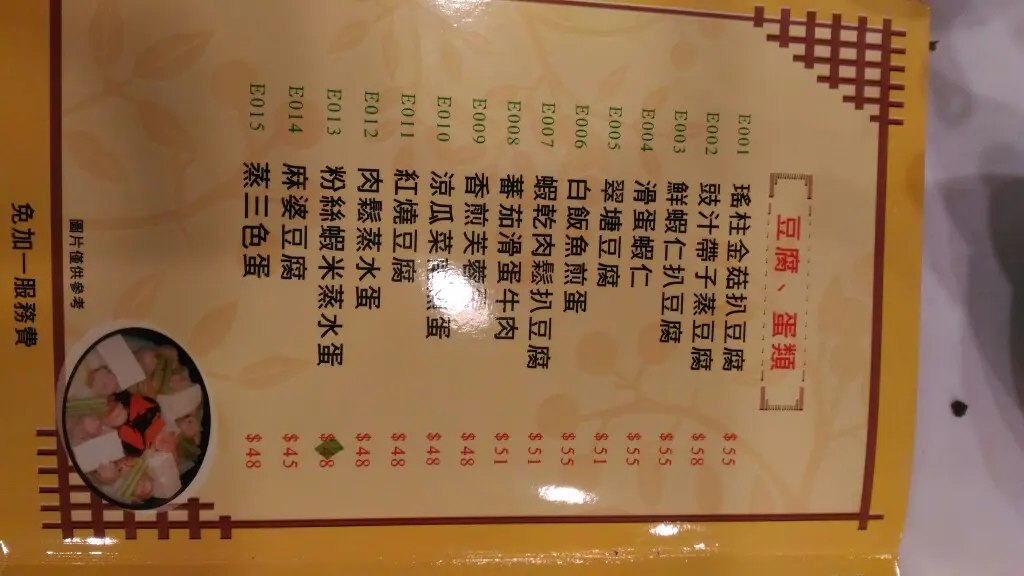 豆腐、蛋類
E001 瑤柱金菇扒豆腐 $55
E002 豉汁帶子蒸豆腐 $58
E003 鮮蝦仁扒豆腐 $55
E004 滑蛋蝦仁 $55
E005 翠塘豆腐 $51
E006 白飯魚煎蛋 $55
E007 蝦乾肉鬆扒豆腐 $51
E008 蕃茄滑蛋牛肉 $51
E009 香煎芙蓉 $48
E010 涼瓜菜煎蛋 $48
E011 紅燒豆腐 $48
E012 肉鬆蒸水蛋 $48
E013 粉絲蝦米蒸水蛋 $8
E014 麻婆豆腐 $45
E015 蒸三色蛋 $48
圖片僅供參考
免加一服務費